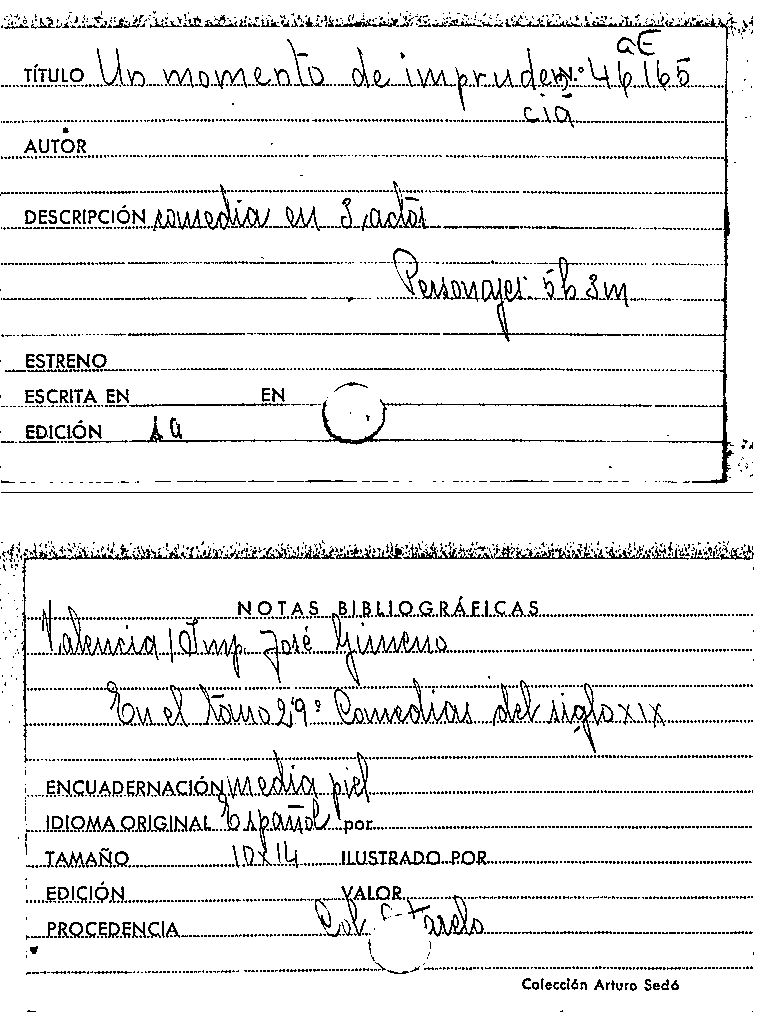 aE
TÍTULO Un momento de impruden N.º 46165
cia
AUTOR
DESCRIPCIÓN comedia en 3 actos
Personajes: 5h 3m
ESTRENO
ESCRITA EN EN
EDICIÓN s a
NOTAS BIBLIOGRÁFICAS
Valencia / Imp. José Gimeno
En el tomo 29º Comedias del siglo XIX
ENCUADERNACIÓN media piel
IDIOMA ORIGINAL Español por
TAMAÑO 10x14 ILUSTRADO POR
EDICIÓN VALOR
PROCEDENCIA Col.
Colección Arturo Sedó